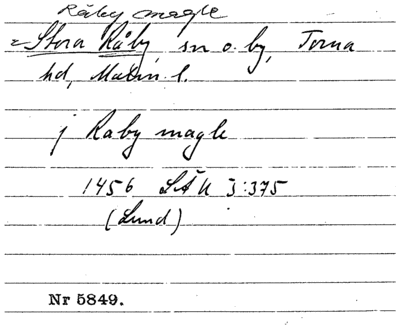 Råby magle
= Stora Råby, sn o. by, Torna
hd, Malm. l.
j Raby magle
1456 LÄU 3:375
(Lund)
Nr 5849.